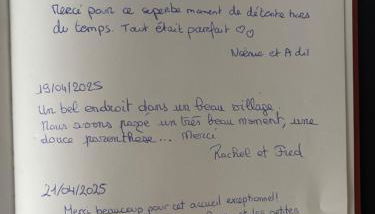 Merci pour ce superbe moment de détente hors
du temps. Tout était parfait ♡♡
et Adil
19/04/2025
Un bel endroit dans un beau village.
Nous avons passé un très beau moment, une
douce parenthèse... Merci
Rachel et Fred
21/04/2025
Merci beaucoup pour cet accueil exceptionnel!
et les petites